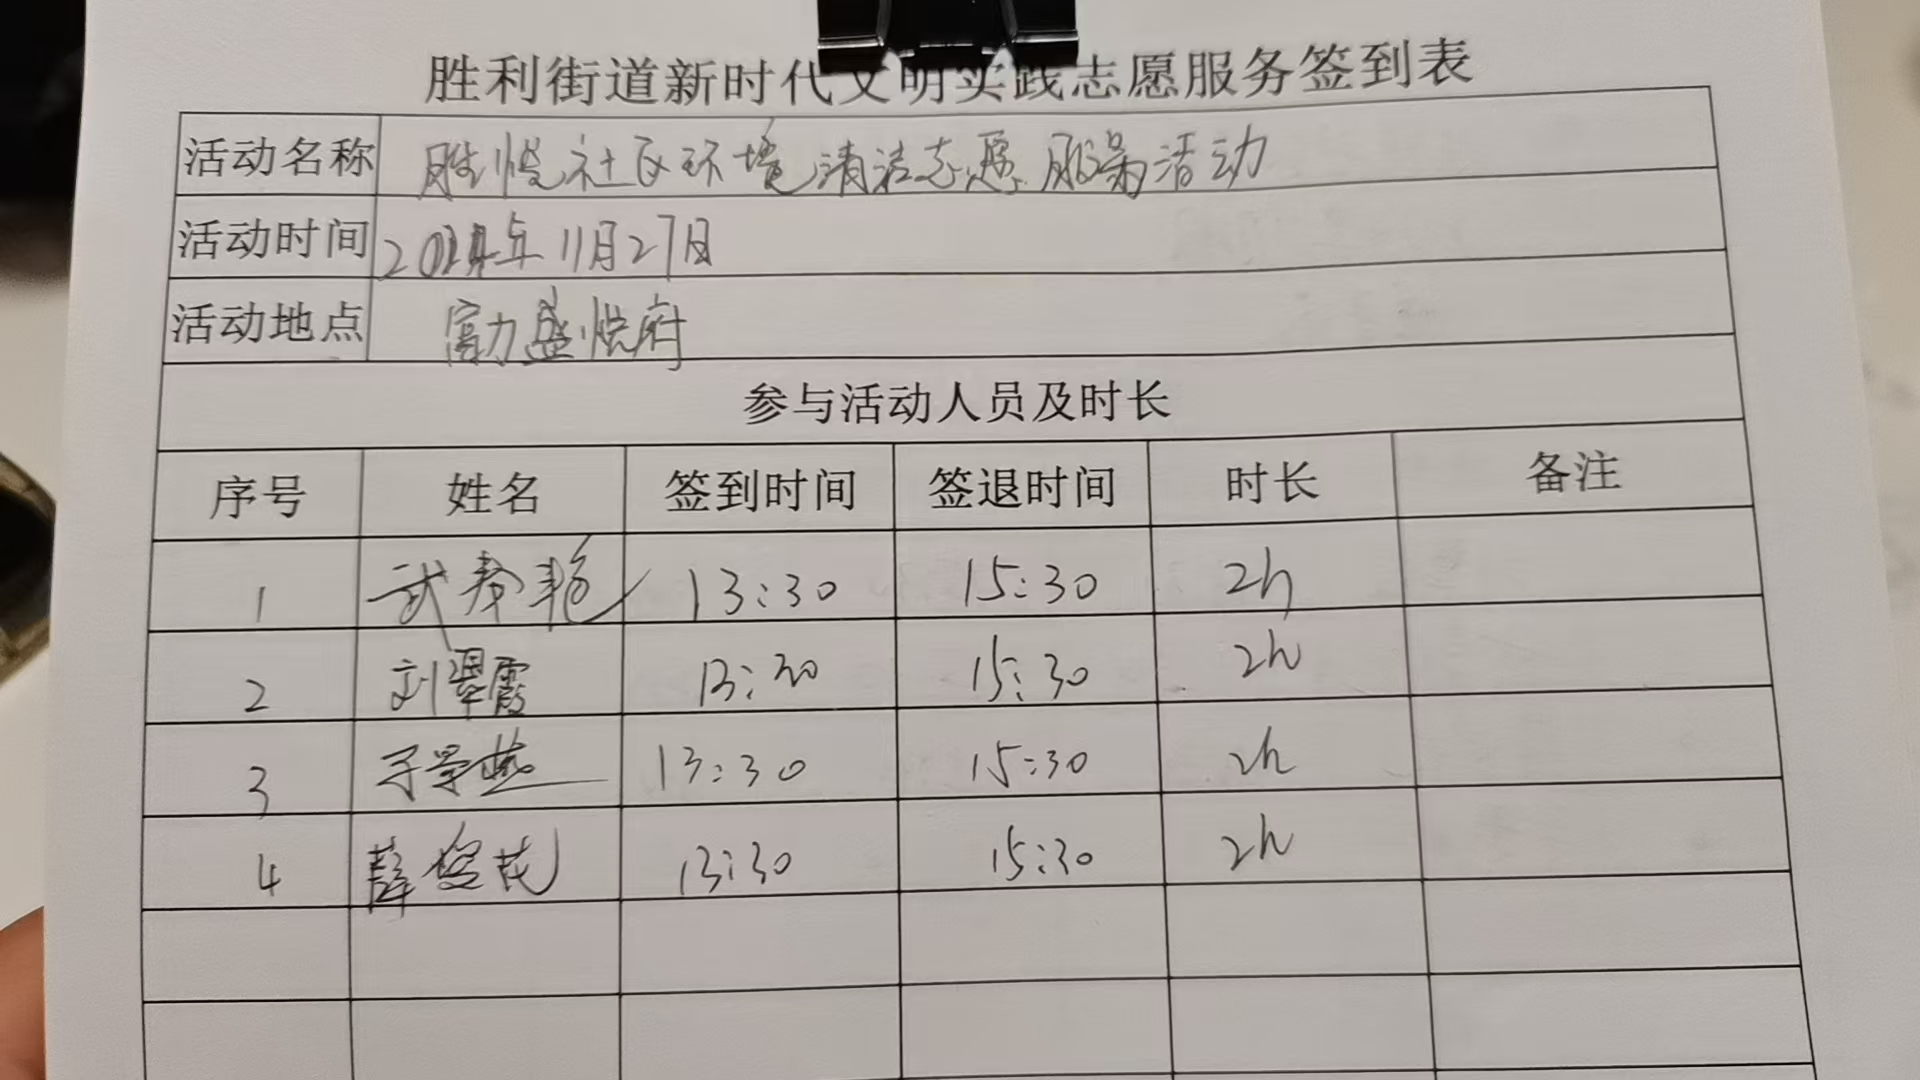 胜利街道新时代文明实践志愿服务签到表
活动名称 胜悦社区环境清洁志愿服务活动
活动时间 2024年11月27日
活动地点 富力盛悦府
参与活动人员及时长
序号 姓名 签到时间 签退时间 时长 备注
1 武春艳 13:30 15:30 2h
2 刘翠霞 13:30 15:30 2h
3 13:30 15:30 2h
4 薛俊花 13:30 15:30 2h